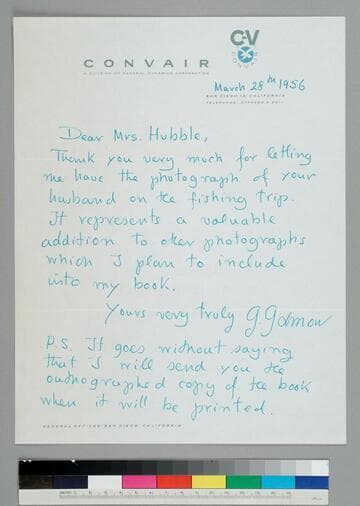 C-V
CONVAIR
CONVAIR
A DIVISION OF GENERAL DYNAMICS CORPORATION
March 28th 1956
SAN DIEGO 12, CALIFORNIA
TELEPHONE: CYPRESS
Dear Mrs. Hubble,
Thank you very much for letting
me have the photograph of your
husband on the fishing trip.
It represents a valuable
addition to other photographs
which I plan to include
into my book.
Yours very truly G. Gamow
P.S. It goes without saying
that I will send you the
outhographed copy of the book
when it will be printed.
GENERAL OFFICES: SAN DIEGO, CALIFORNIA